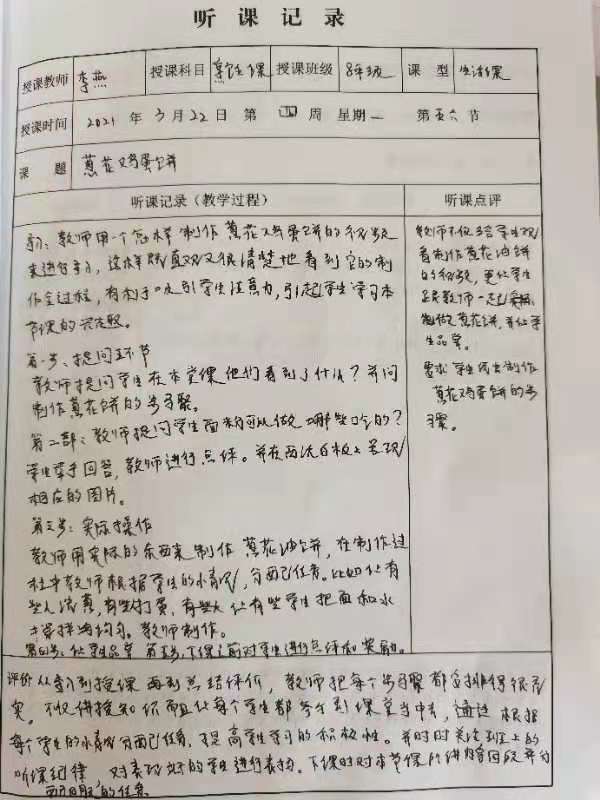 听课记录
授课教师 李燕 授课科目 烹饪课 授课班级 8年级 课型 生活课
授课时间 2021年3月22日 第四周 星期一 第五六节
课题 葱花鸡蛋饼
听课记录（教学过程） 听课点评
导入：教师用一个怎样制作葱花鸡蛋饼的视频
来进行导入，这样既直观又很清楚地看到它的制
作全过程，有利于吸引学生注意力，引起学生学习本
节课的兴趣。
第一步、提问环节
教师提问学生在本堂课他们看到了什么？并问
制作葱花饼的步骤。
第二部：教师提问学生面粉可以做哪些吃的？
学生举手回答，教师进行点评。并在西沃白板上呈现
相应的图片。
第三步：实际操作
教师用实际的东西来制作葱花油饼，在制作过
程中教师根据学生的情况，分配任务。比如让有
些人洗菜，有些打蛋，有些让有些学生把面和水
搅拌均匀。教师制作。
第四步：让学生品尝 第五步，下课之前对学生进行点评和奖励。
教师不仅给学生观
看制作葱花油饼
的视频，更让学生
跟教师一起
做葱花饼，并让学
生品尝。
要求学生说出制作
葱花鸡蛋饼的步
骤。
评价 从导入到授课再到总结评价，教师把每个步骤都安排得很充
实。不仅讲授知识而且让每个学生都参与到课堂当中来，通过根据
每个学生的情况分配任务，提高学生学习的积极性。并时时关注到班上的
听课纪律，对表现好的学生进行表扬。下课时对本节课所讲内容回顾并分
配相应的任务